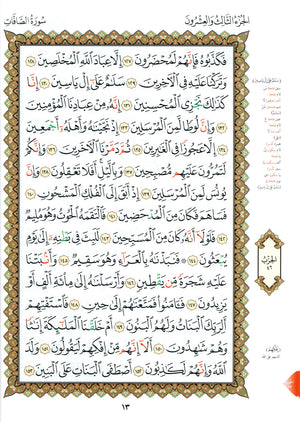 الجزء الثالث والعشرون
سورة الصافات
فَكَذَّبُوهُ فَإِنَّهُمْ لَمُحْضَرُونَ ١٢٧ إِلَّا عِبَادَ اللَّهِ الْمُخْلَصِينَ ١٢٨
وَتَرَكْنَا عَلَيْهِ فِي الْآخِرِينَ ١٢٩ سَلَامٌ عَلَىٰ إِلْ يَاسِينَ ١٣٠ إِنَّا
كَذَٰلِكَ نَجْزِي الْمُحْسِنِينَ ١٣١ إِنَّهُ مِنْ عِبَادِنَا الْمُؤْمِنِينَ
١٣٢ وَإِنَّ لُوطًا لَّمِنَ الْمُرْسَلِينَ ١٣٣ إِذْ نَجَّيْنَاهُ وَأَهْلَهُ أَجْمَعِينَ
١٣٤ إِلَّا عَجُوزًا فِي الْغَابِرِينَ ١٣٥ ثُمَّ دَمَّرْنَا الْآخَرِينَ ١٣٦ وَإِنَّكُمْ
لَتَمُرُّونَ عَلَيْهِم مُّصْبِحِينَ ١٣٧ وَبِاللَّيْلِ أَفَلَا تَعْقِلُونَ ١٣٨ وَإِنَّ
يُونُسَ لَمِنَ الْمُرْسَلِينَ ١٣٩ إِذْ أَبَقَ إِلَى الْفُلْكِ الْمَشْحُونِ ١٤٠
فَسَاهَمَ فَكَانَ مِنَ الْمُدْحَضِينَ ١٤١ فَالْتَقَمَهُ الْحُوتُ وَهُوَ مُلِيمٌ
١٤٢ فَلَوْلَا أَنَّهُ كَانَ مِنَ الْمُسَبِّحِينَ ١٤٣ لَلَبِثَ فِي بَطْنِهِ إِلَىٰ يَوْمِ
يُبْعَثُونَ ١٤٤ فَنَبَذْنَاهُ بِالْعَرَاءِ وَهُوَ سَقِيمٌ ١٤٥ وَأَنبَتْنَا
عَلَيْهِ شَجَرَةً مِّن يَقْطِينٍ ١٤٦ وَأَرْسَلْنَاهُ إِلَىٰ مِائَةِ أَلْفٍ أَوْ
يَزِيدُونَ ١٤٧ فَآمَنُوا فَمَتَّعْنَاهُمْ إِلَىٰ حِينٍ ١٤٨ فَاسْتَفْتِهِمْ
أَلِرَبِّكَ الْبَنَاتُ وَلَهُمُ الْبَنُونَ ١٤٩ أَمْ خَلَقْنَا الْمَلَائِكَةَ إِنَاثًا
وَهُمْ شَاهِدُونَ ١٥٠ أَلَا إِنَّهُم مِّنْ إِفْكِهِمْ لَيَقُولُونَ ١٥١ وَلَدَ
اللَّهُ وَإِنَّهُمْ لَكَاذِبُونَ ١٥٢ أَصْطَفَى الْبَنَاتِ عَلَى الْبَنِينَ ١٥٣
الحزب
٤٦
١٣